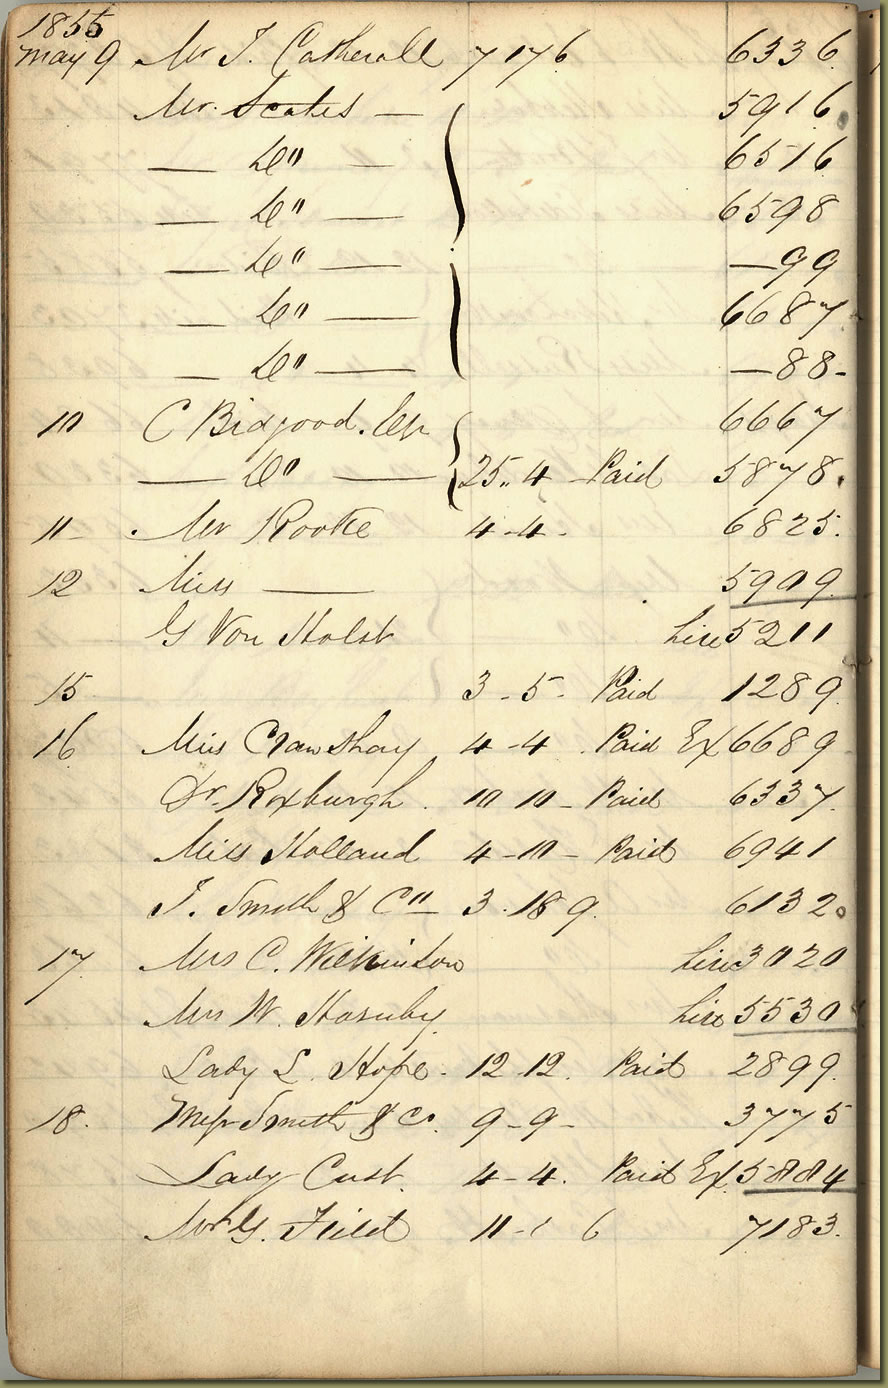 1855
May 9 Mr J. Catherall 7 17 6 6336
Mr. Scates — 5916
— Do — 6516
— Do — 6598
— Do — —99
— Do — 6687
— Do — —88-
10 C Bidgood. Esqr 6667
— Do — 25.. 4 - Paid 5878.
11 - Mr Rooke 4-4. 6825.
12 Miss — 5909
G Von Holst hire 5211
15 3-5- Paid 1289
16 Miss Crawshay 4-4 . Paid Ex 6689
Dr. Roxburgh. 10 10- Paid 6337
Miss Holland 4-10- Paid 6941
J. Smith & Co 3.18 9. 6132
17 Mrs C. Wilkinson hire 3020
Mrs W. Hornby hire 5530
Lady L. Hope. 12 12. Paid 2899
18. Messrs Smith & Co. 9-9- 3775
Lady Cust. 4-4. Paid Ex. 5884
Mr G. Field 11-1 6 7183.